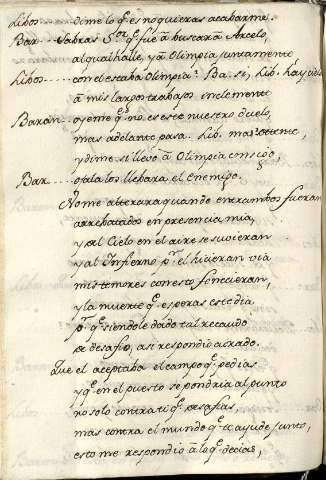 Libos ---- dime lo q̃ es no quieras acabarme.
Bar -- Sabras Sor q̃ fue a buscar a Arcelo,
al qual halle, y a Olimpia juntamente
Libos ---- con el estaba Olimpia? Ba. si, Lib. hay cielo
a mis largos trabajos inclemente
Baran -- oyeme q̃ no es este nuestro duelo,
mas adelante pasa. Lib. mas
y dime si llevo a Olimpia consigo,
Bar ---- ojala los llebara el Enemigo.
No me alterara quando entrambos fueran
arrebatados en presencia mia,
y al Cielo en el aire se suvieran
y al Infierno pr. el hicieran via
mis temores con esto fenecieran,
y la muerte q̃ esperas este dia
pr. q̃ siendole dado tal recaudo
de desafio, asi respondio airado.
Que el aceptaba el campo q̃ pedias
y q̃ en el puesto se pondria al punto
no solo contra ti q̃ desafias,
mas contra el mundo q̃ te ayude junto,
esto me respondio a lo q̃ decias,